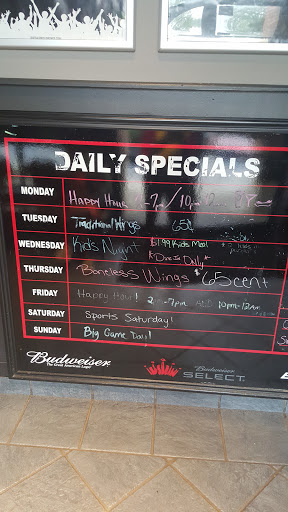 DAILY SPECIALS
MONDAY Happy Hour
TUESDAY Traditional Wings 65¢
WEDNESDAY Kids Night $1.99 Kids Meal
THURSDAY Boneless Wings 65cent
FRIDAY Happy Hour! 2 -7pm AND 10pm-12am
SATURDAY Sports Saturday!
SUNDAY Big Game Day!
Budweiser
The Great American Lager
Budweiser
SELECT